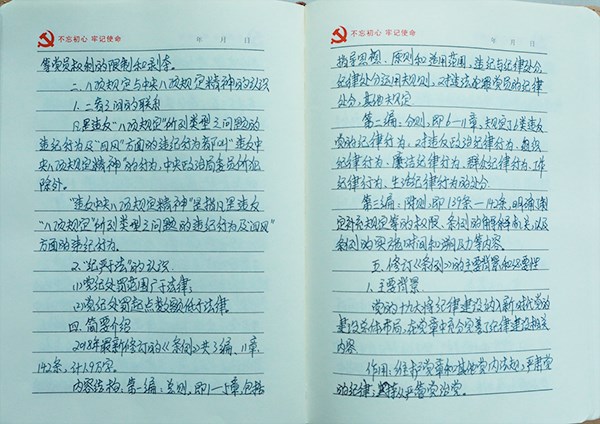 不忘初心 牢记使命
年 月 日
等党员权利的限制和剥夺。
二、八项规定与中央八项规定精神的认识
1.二者之间的联系
凡是违反"八项规定"所列类型之问题的
违纪行为及"四风"方面的违纪行为都叫"违反中
央八项规定精神"的行为,中央政治局委员所犯
除外。
"违反中央八项规定精神"是指凡是违反
"八项规定"所列类型之问题的违纪行为及"四风"
方面的违纪行为。
2."纪严于法"的认识
(1)党纪处罚范围广于法律;
(2)党纪处罚起点数额低于法律。
四、简要介绍
2018年最新修订的《条例》共3编、11章、
142条,计1.9万字。
内容结构:第一编:总则,即1—5章,包括
不忘初心 牢记使命
年 月 日
指导思想、原则和适用范围,违纪与纪律处分,
纪律处分运用规则,对违法犯罪党员的纪律
处分,其他规定
第二编:分则,即6—11章,规定了6类违反
党的纪律行为,对违反政治纪律行为、组织
纪律行为、廉洁纪律行为、群众纪律行为、工作
纪律行为、生活纪律行为的处分
第三编:附则,即139条—142条,明确了制
定补充规定等的权限、条例的解释机关,以及
条例的实施时间和溯及力等内容.
五、修订《条例》的主要背景和必要性
1.主要背景
党的十九大将纪律建设纳入新时代党的
建设总体布局,在党章中充分完善了纪律建设相关
内容
作用:维护党章和其他党内法规,严肃党
的纪律;从严管党治党。